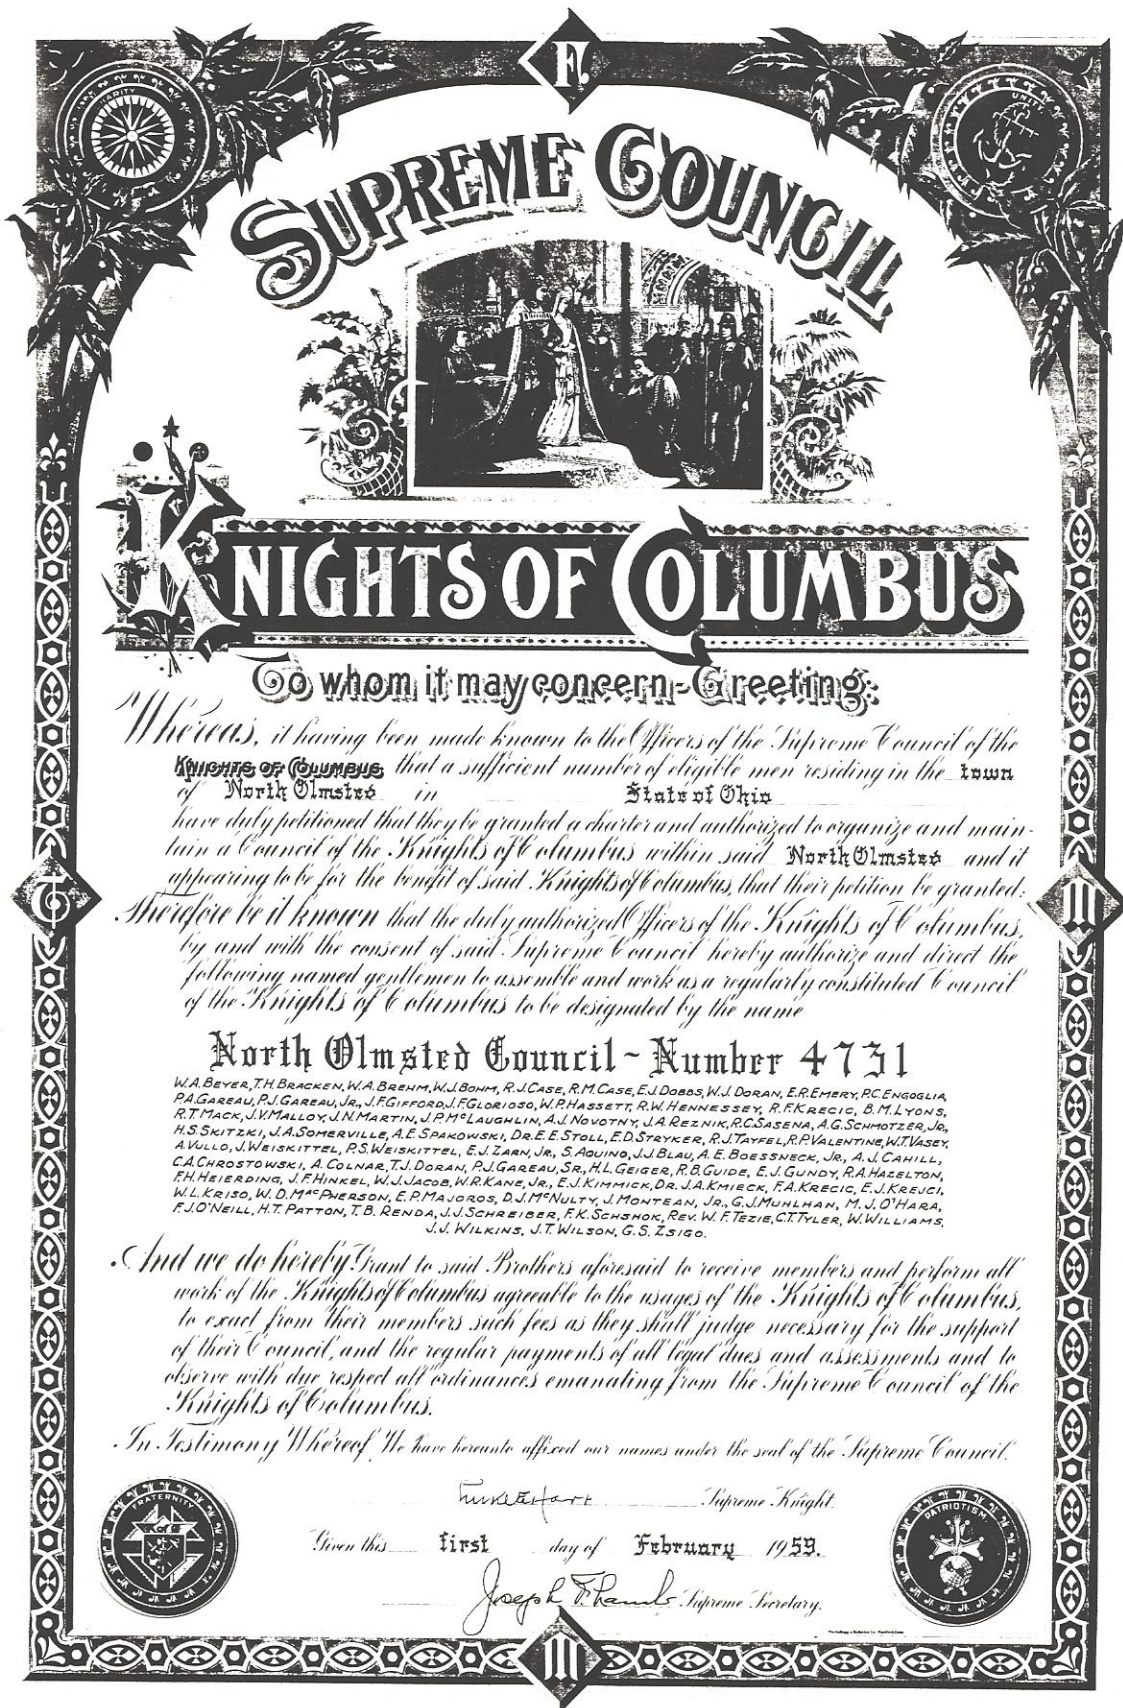 F.
CHARITY
UNITY
SUPREME COUNCIL
KNIGHTS OF COLUMBUS
To whom it may concern-Greeting:
Whereas, it having been made known to the Officers of the Supreme Council of the
KNIGHTS OF COLUMBUS that a sufficient number of eligible men residing in the town
of North Olmsted in State of Ohio
have duly petitioned that they be granted a charter and authorized to organize and main-
tain a Council of the Knights of Columbus within said North Olmsted and it
appearing to be for the benefit of said Knights of Columbus, that their petition be granted:
Therefore be it known that the duly authorized Officers of the Knights of Columbus,
by and with the consent of said Supreme Council hereby authorize and direct the
following named gentlemen to assemble and work as a regularly constituted Council
of the Knights of Columbus to be designated by the name
North Olmsted Council - Number 4731
W.A. BEYER, T.H. BRACKEN, W.A. BREHM, W.J. BOHM, R.J. CASE, R.M. CASE, E.J. DOBBS, W.J. DORAN, E.R. EMERY, P.C. ENGOGLIA,
P.A. GAREAU, P.J. GAREAU, JR., J.F. GIFFORD, J.F. GLORIOSO, W.P. HASSETT, R.W. HENNESSEY, R.F. KRECIC, B.M. LYONS,
R.T. MACK, J.V. MALLOY, J.N. MARTIN, J.P. McLAUGHLIN, A.J. NOVOTNY, J.A. REZNIK, R.C. SASENA, A.G. SCHMOTZER, JR,
H.S. SKITZKI, J.A. SOMERVILLE, A.E. SPAKOWSKI, DR. E.E. STOLL, E.D. STRYKER, R.J. TAYFEL, R.P. VALENTINE, W.T. VASEY,
A. VULLO, J. WEISKITTEL, P.S. WEISKITTEL, E.J. ZARN, JR., S. AQUINO, J.J. BLAU, A.E. BOESSNECK, JR., A.J. CAHILL,
C.A. CHROSTOWSKI, A. COLNAR, T.J. DORAN, P.J. GAREAU, SR., H.L. GEIGER, R.B. GUIDE, E.J. GUNDY, R.A. HAZELTON,
F.H. HEIERDING, J.F. HINKEL, W.J. JACOB, W.R. KANE, JR., E.J. KIMMICK, DR. J.A. KMIECK, F.A. KRECIC, E.J. KREJCI,
W.L. KRISO, W.D. MacPHERSON, E.P. MAJOROS, D.J. McNULTY, J. MONTEAN, JR., G.J. MUHLHAN, M.J. O'HARA,
F.J. O'NEILL, H.T. PATTON, T.B. RENDA, J.J. SCHREIBER, F.K. SCHSHOK, REV. W.F. TEZIE, C.T. TYLER, W. WILLIAMS,
J.J. WILKINS, J.T. WILSON, G.S. ZSIGO.
And we do hereby Grant to said Brothers aforesaid to receive members and perform all
work of the Knights of Columbus agreeable to the usages of the Knights of Columbus,
to exact from their members such fees as they shall judge necessary for the support
of their Council, and the regular payments of all legal dues and assessments and to
observe with due respect all ordinances emanating from the Supreme Council of the
Knights of Columbus.
In Testimony Whereof We have hereunto affixed our names under the seal of the Supreme Council.
Luke E. Hart Supreme Knight.
FRATERNITY
K of C
PATRIOTISM
Given this first day of February 1959.
Joseph F. Lamb Supreme Secretary.